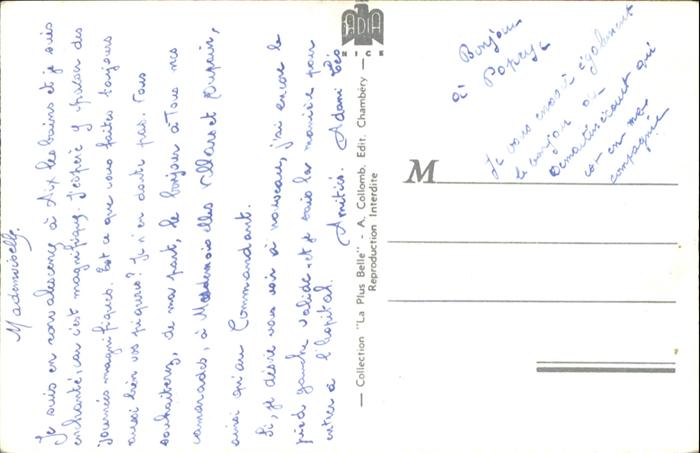 Mademoiselle,
Je suis en convalescence à Aix les bains et je suis
enchanté, car c'est magnifique. J'espère y passer des
journées magnifiques. Est ce que vous faites toujours
aussi bien vos piqures? Je n'en doute pas. Vous
souhaiterez, de ma part, le bonjour à Tous mes
camarades, à Mesdemoiselles Villars et Dupuis,
ainsi qu'au Commandant.
Si, je désire vous voir à nouveau, j'ai encore le
pied gauche valide et je sais la manière pour
entrer à l'hopital. Amitiés. Adami Léo
ADIA
NICE
— Collection "La Plus Belle" - A. Collomb. Edit. Chambéry —
Reproduction Interdite
Bonjour
à Popeye
Je vous envoie également
le bonjour de
qui
est en ma
compagnie
M